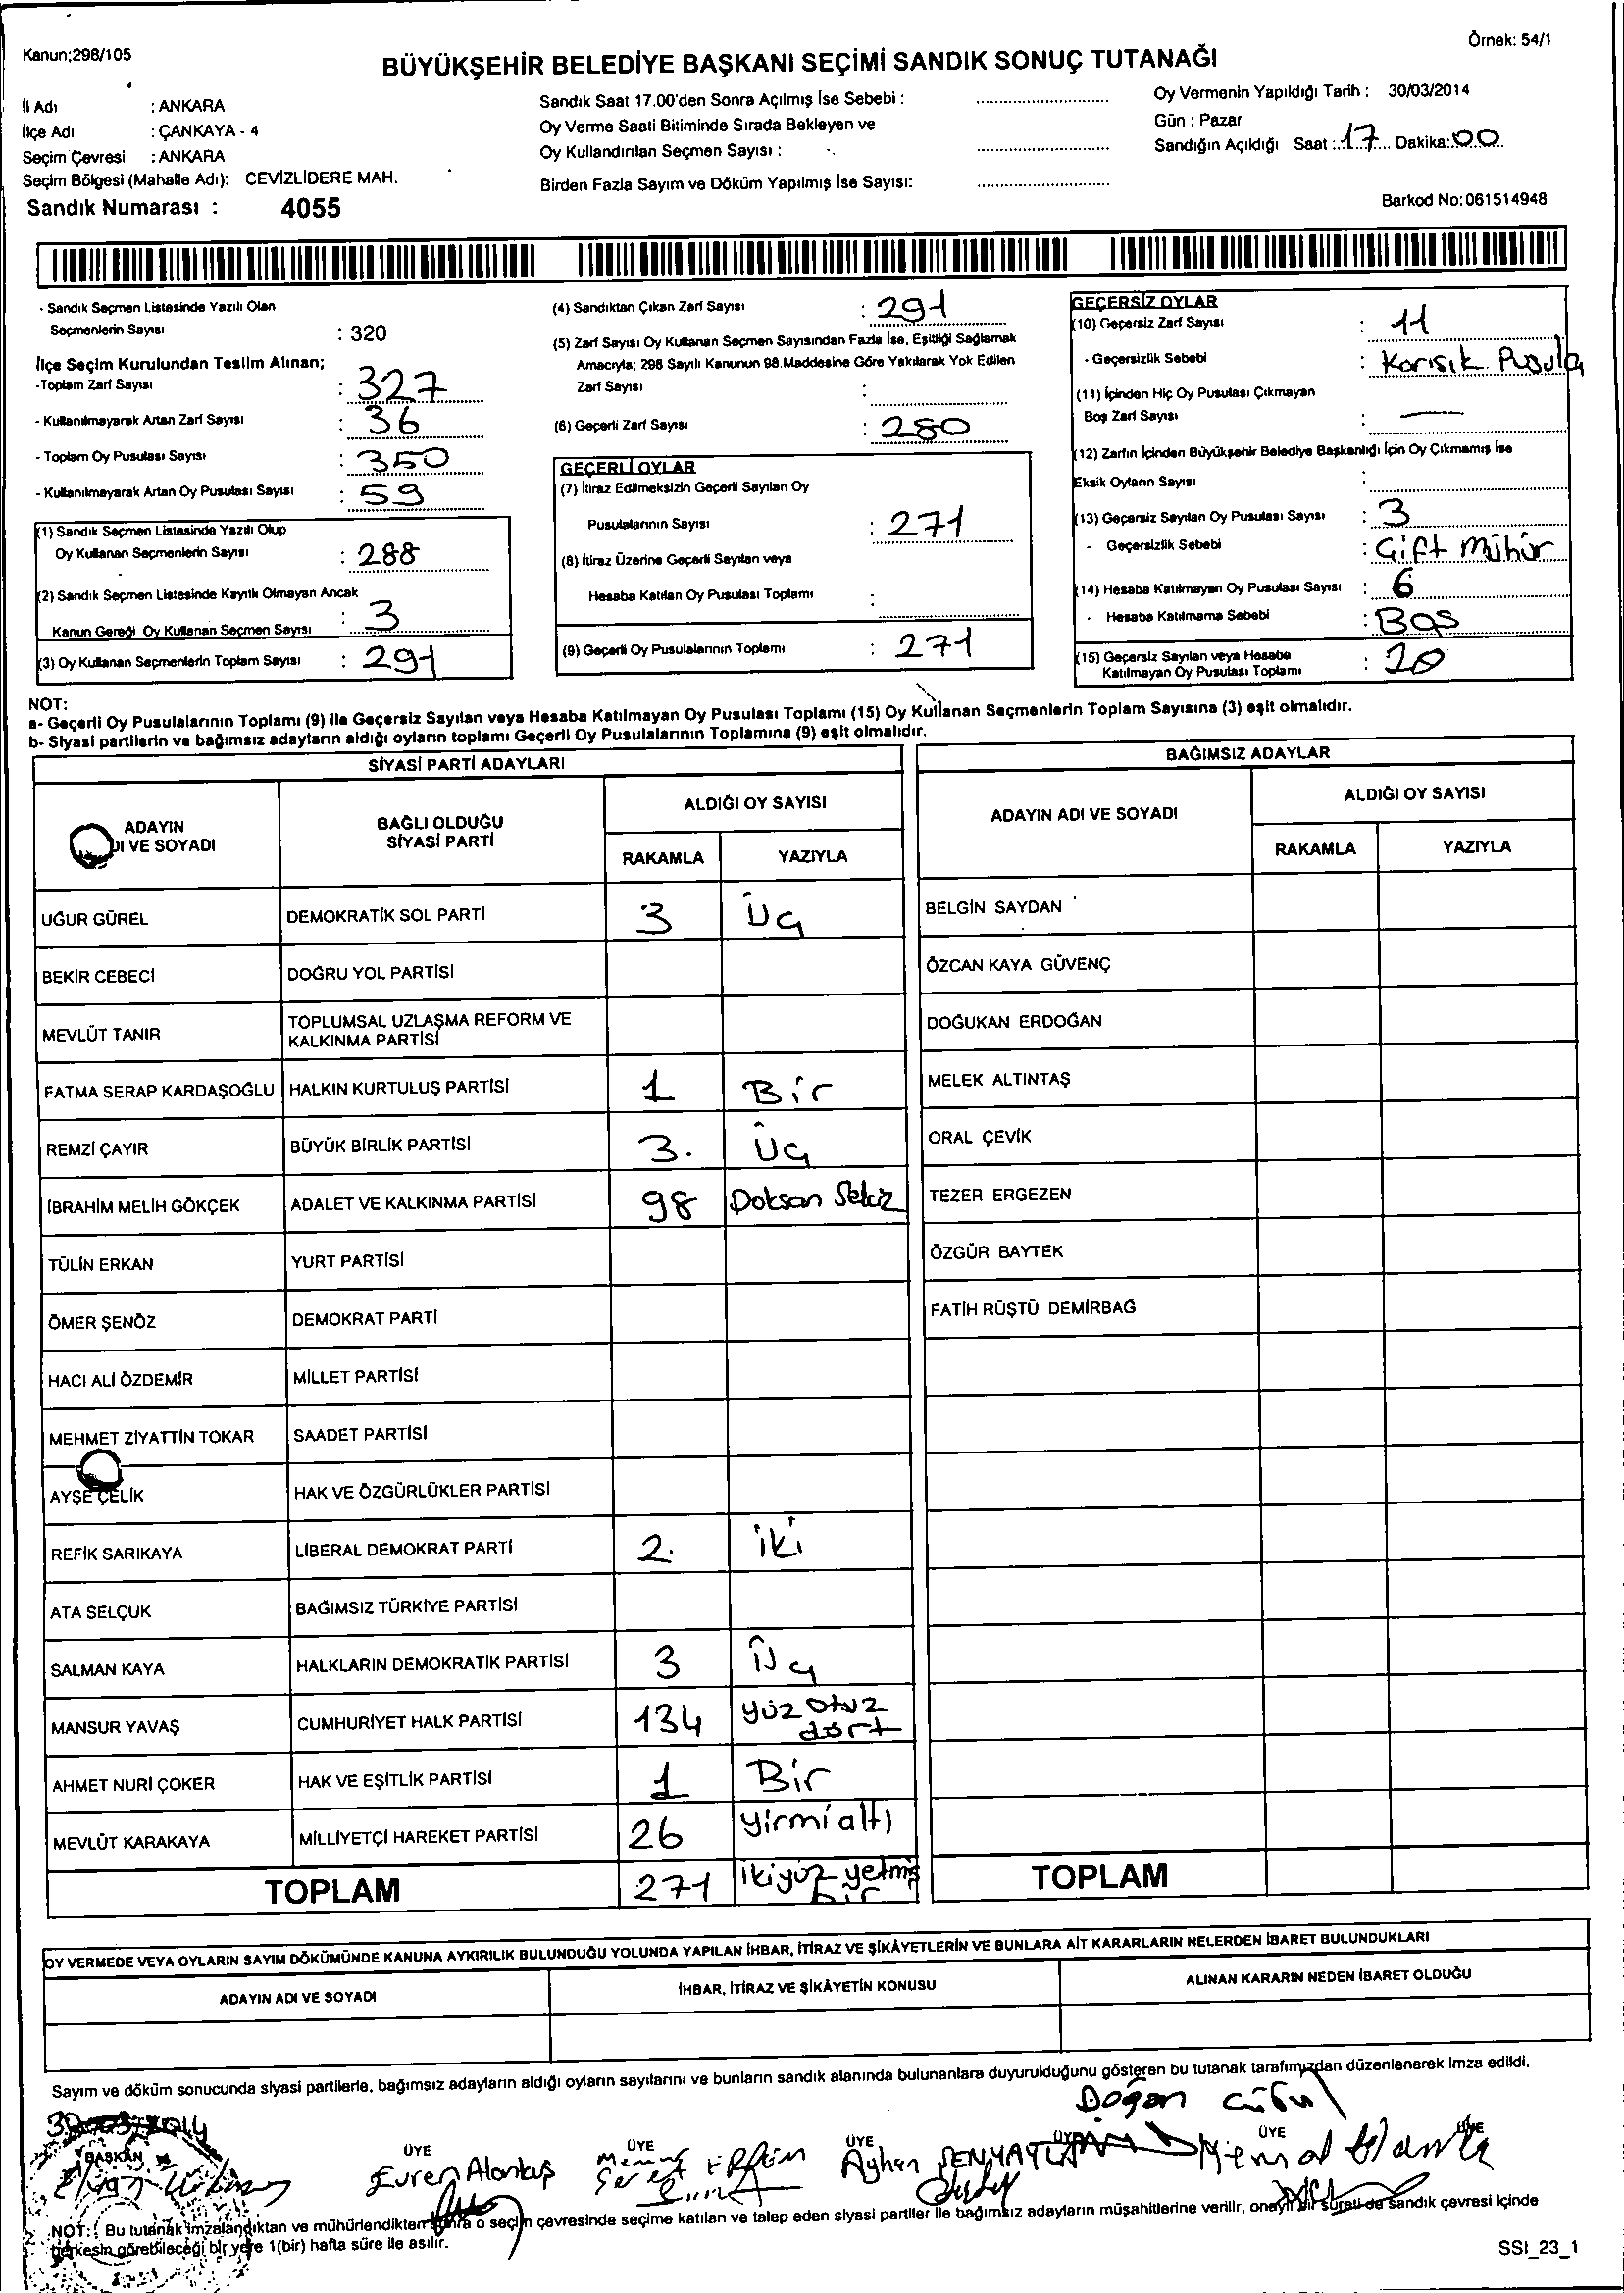 Kanun;298/105
Örnek: 54/1
BÜYÜKŞEHİR BELEDİYE BAŞKANI SEÇİMİ SANDIK SONUÇ TUTANAĞI
İl Adı : ANKARA
İlçe Adı : ÇANKAYA - 4
Seçim Çevresi : ANKARA
Seçim Bölgesi (Mahalle Adı): CEVİZLİDERE MAH.
Sandık Numarası : 4055
Sandık Saat 17.00'den Sonra Açılmış İse Sebebi :
Oy Verme Saati Bitiminde Sırada Bekleyen ve
Oy Kullandırılan Seçmen Sayısı :
Birden Fazla Sayım ve Döküm Yapılmış İse Sayısı:
Oy Vermenin Yapıldığı Tarih : 30/03/2014
Gün : Pazar
Sandığın Açıldığı Saat : 17 Dakika: 00
Barkod No:061514948
- Sandık Seçmen Listesinde Yazılı Olan
Seçmenlerin Sayısı : 320
İlçe Seçim Kurulundan Teslim Alınan;
-Toplam Zarf Sayısı : 327
- Kullanılmayarak Artan Zarf Sayısı : 36
- Toplam Oy Pusulası Sayısı : 350
- Kullanılmayarak Artan Oy Pusulası Sayısı : 59
(1) Sandık Seçmen Listesinde Yazılı Olup
Oy Kullanan Seçmenlerin Sayısı : 288
(2) Sandık Seçmen Listesinde Kayıtlı Olmayan Ancak
Kanun Gereği Oy Kullanan Seçmen Sayısı : 3
(3) Oy Kullanan Seçmenlerin Toplam Sayısı : 291
(4) Sandıktan Çıkan Zarf Sayısı : 291
(5) Zarf Sayısı Oy Kullanan Seçmen Sayısından Fazla İse, Eşitliği Sağlamak
Amacıyla; 298 Sayılı Kanunun 98.Maddesine Göre Yakılarak Yok Edilen
Zarf Sayısı :
(6) Geçerli Zarf Sayısı : 280
GEÇERLİ OYLAR
(7) İtiraz Edilmeksizin Geçerli Sayılan Oy
Pusulalarının Sayısı : 271
(8) İtiraz Üzerine Geçerli Sayılan veya
Hesaba Katılan Oy Pusulası Toplamı :
(9) Geçerli Oy Pusulalarının Toplamı : 271
GEÇERSİZ OYLAR
(10) Geçersiz Zarf Sayısı : 11
- Geçersizlik Sebebi : Karışık Pusula
(11) İçinden Hiç Oy Pusulası Çıkmayan
Boş Zarf Sayısı : —
(12) Zarfın İçinden Büyükşehir Belediye Başkanlığı İçin Oy Çıkmamış İse
Eksik Oyların Sayısı :
(13) Geçersiz Sayılan Oy Pusulası Sayısı : 3
- Geçersizlik Sebebi : Çift mühür
(14) Hesaba Katılmayan Oy Pusulası Sayısı : 6
- Hesaba Katılmama Sebebi : Boş
(15) Geçersiz Sayılan veya Hesaba
Katılmayan Oy Pusulası Toplamı : 20
NOT:
a- Geçerli Oy Pusulalarının Toplamı (9) ile Geçersiz Sayılan veya Hesaba Katılmayan Oy Pusulası Toplamı (15) Oy Kullanan Seçmenlerin Toplam Sayısına (3) eşit olmalıdır.
b- Siyasi partilerin ve bağımsız adayların aldığı oyların toplamı Geçerli Oy Pusulalarının Toplamına (9) eşit olmalıdır.
SİYASİ PARTİ ADAYLARI
ADAYIN
DI VE SOYADI
BAĞLI OLDUĞU
SİYASİ PARTİ
ALDIĞI OY SAYISI
RAKAMLA YAZIYLA
UĞUR GÜREL DEMOKRATİK SOL PARTİ 3 Üç
BEKİR CEBECİ DOĞRU YOL PARTİSİ
MEVLÜT TANIR TOPLUMSAL UZLAŞMA REFORM VE
KALKINMA PARTİSİ
FATMA SERAP KARDAŞOĞLU HALKIN KURTULUŞ PARTİSİ 1 Bir
REMZİ ÇAYIR BÜYÜK BİRLİK PARTİSİ 3. Üç
İBRAHİM MELİH GÖKÇEK ADALET VE KALKINMA PARTİSİ 98 Doksan Sekiz
TÜLİN ERKAN YURT PARTİSİ
ÖMER ŞENÖZ DEMOKRAT PARTİ
HACI ALİ ÖZDEMİR MİLLET PARTİSİ
MEHMET ZİYATTİN TOKAR SAADET PARTİSİ
AYŞE ÇELİK HAK VE ÖZGÜRLÜKLER PARTİSİ
REFİK SARIKAYA LİBERAL DEMOKRAT PARTİ 2. iki
ATA SELÇUK BAĞIMSIZ TÜRKİYE PARTİSİ
SALMAN KAYA HALKLARIN DEMOKRATİK PARTİSİ 3 Üç
MANSUR YAVAŞ CUMHURİYET HALK PARTİSİ 134 yüz otuz
dört
AHMET NURİ ÇOKER HAK VE EŞİTLİK PARTİSİ 1 Bir
MEVLÜT KARAKAYA MİLLİYETÇİ HAREKET PARTİSİ 26 yirmi altı
TOPLAM 271 ikiyüz yetmiş
bir
BAĞIMSIZ ADAYLAR
ADAYIN ADI VE SOYADI
ALDIĞI OY SAYISI
RAKAMLA YAZIYLA
BELGİN SAYDAN
ÖZCAN KAYA GÜVENÇ
DOĞUKAN ERDOĞAN
MELEK ALTINTAŞ
ORAL ÇEVİK
TEZER ERGEZEN
ÖZGÜR BAYTEK
FATİH RÜŞTÜ DEMİRBAĞ
TOPLAM
OY VERMEDE VEYA OYLARIN SAYIM DÖKÜMÜNDE KANUNA AYKIRILIK BULUNDUĞU YOLUNDA YAPILAN İHBAR, İTİRAZ VE ŞİKÂYETLERİN VE BUNLARA AİT KARARLARIN NELERDEN İBARET BULUNDUKLARI
ADAYIN ADI VE SOYADI
İHBAR, İTİRAZ VE ŞİKÂYETİN KONUSU
ALINAN KARARIN NEDEN İBARET OLDUĞU
Sayım ve döküm sonucunda siyasi partilerle, bağımsız adayların aldığı oyların sayılarını ve bunların sandık alanında bulunanlara duyurulduğunu gösteren bu tutanak tarafımızdan düzenlenerek imza edildi.
Doğan
BAŞKAN ÜYE ÜYE ÜYE ÜYE ÜYE ÜYE
Evren Alantaş
Ayhan
NOT: Bu tutanak imzalandıktan ve mühürlendikten sonra o seçim çevresinde seçime katılan ve talep eden siyasi partiler ile bağımsız adayların müşahitlerine verilir, onaylı bir sureti de sandık çevresi içinde
herkesin görebileceği bir yere 1(bir) hafta süre ile asılır.
SSI_23_1